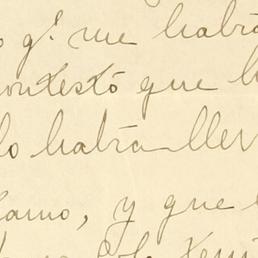 o q.e me había
contestó que h
lo había llev
lamo, y que